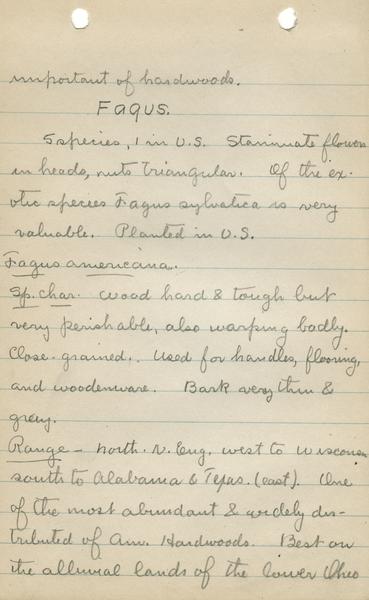 important of hardwoods.
Fagus.
5 species, 1 in U.S. Staminate flowers
in heads, nuts triangular. Of the ex-
otic species Fagus sylvatica is very
valuable. Planted in U.S.
Fagus americana.
Sp. char. Wood hard & tough but
very perishable, also warping badly.
Close-grained. Used for handles, flooring,
and woodenware. Bark very thin &
grey.
Range - north. N. Eng. west to Wisconsin
south to Alabama & Texas. (east). One
of the most abundant & widely dis-
tributed of Am. Hardwoods. Best on
the alluvial lands of the lower Ohio